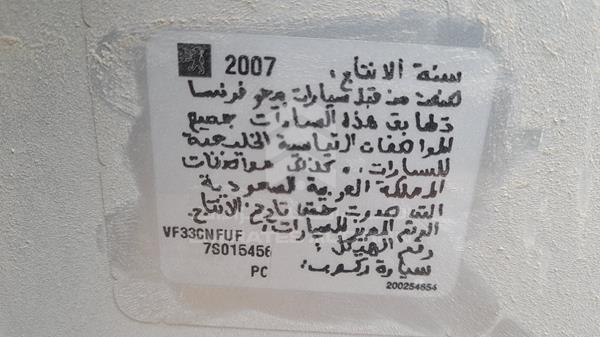 سنة الانتاج: 2007
صنعت من قبل سيارات بيجو فرنسا
وتطابق هذه السيارات جميع
المواصفات القياسية الخليجية
للسيارات، وكذلك مواصفات
المملكة العربية السعودية
التي صدرت حتى تاريخ الانتاج
الرقم المميز للسيارات: VF33CNFUF
رقم الهيكل: 7S015456
سيارة ركوب: PC
200254654